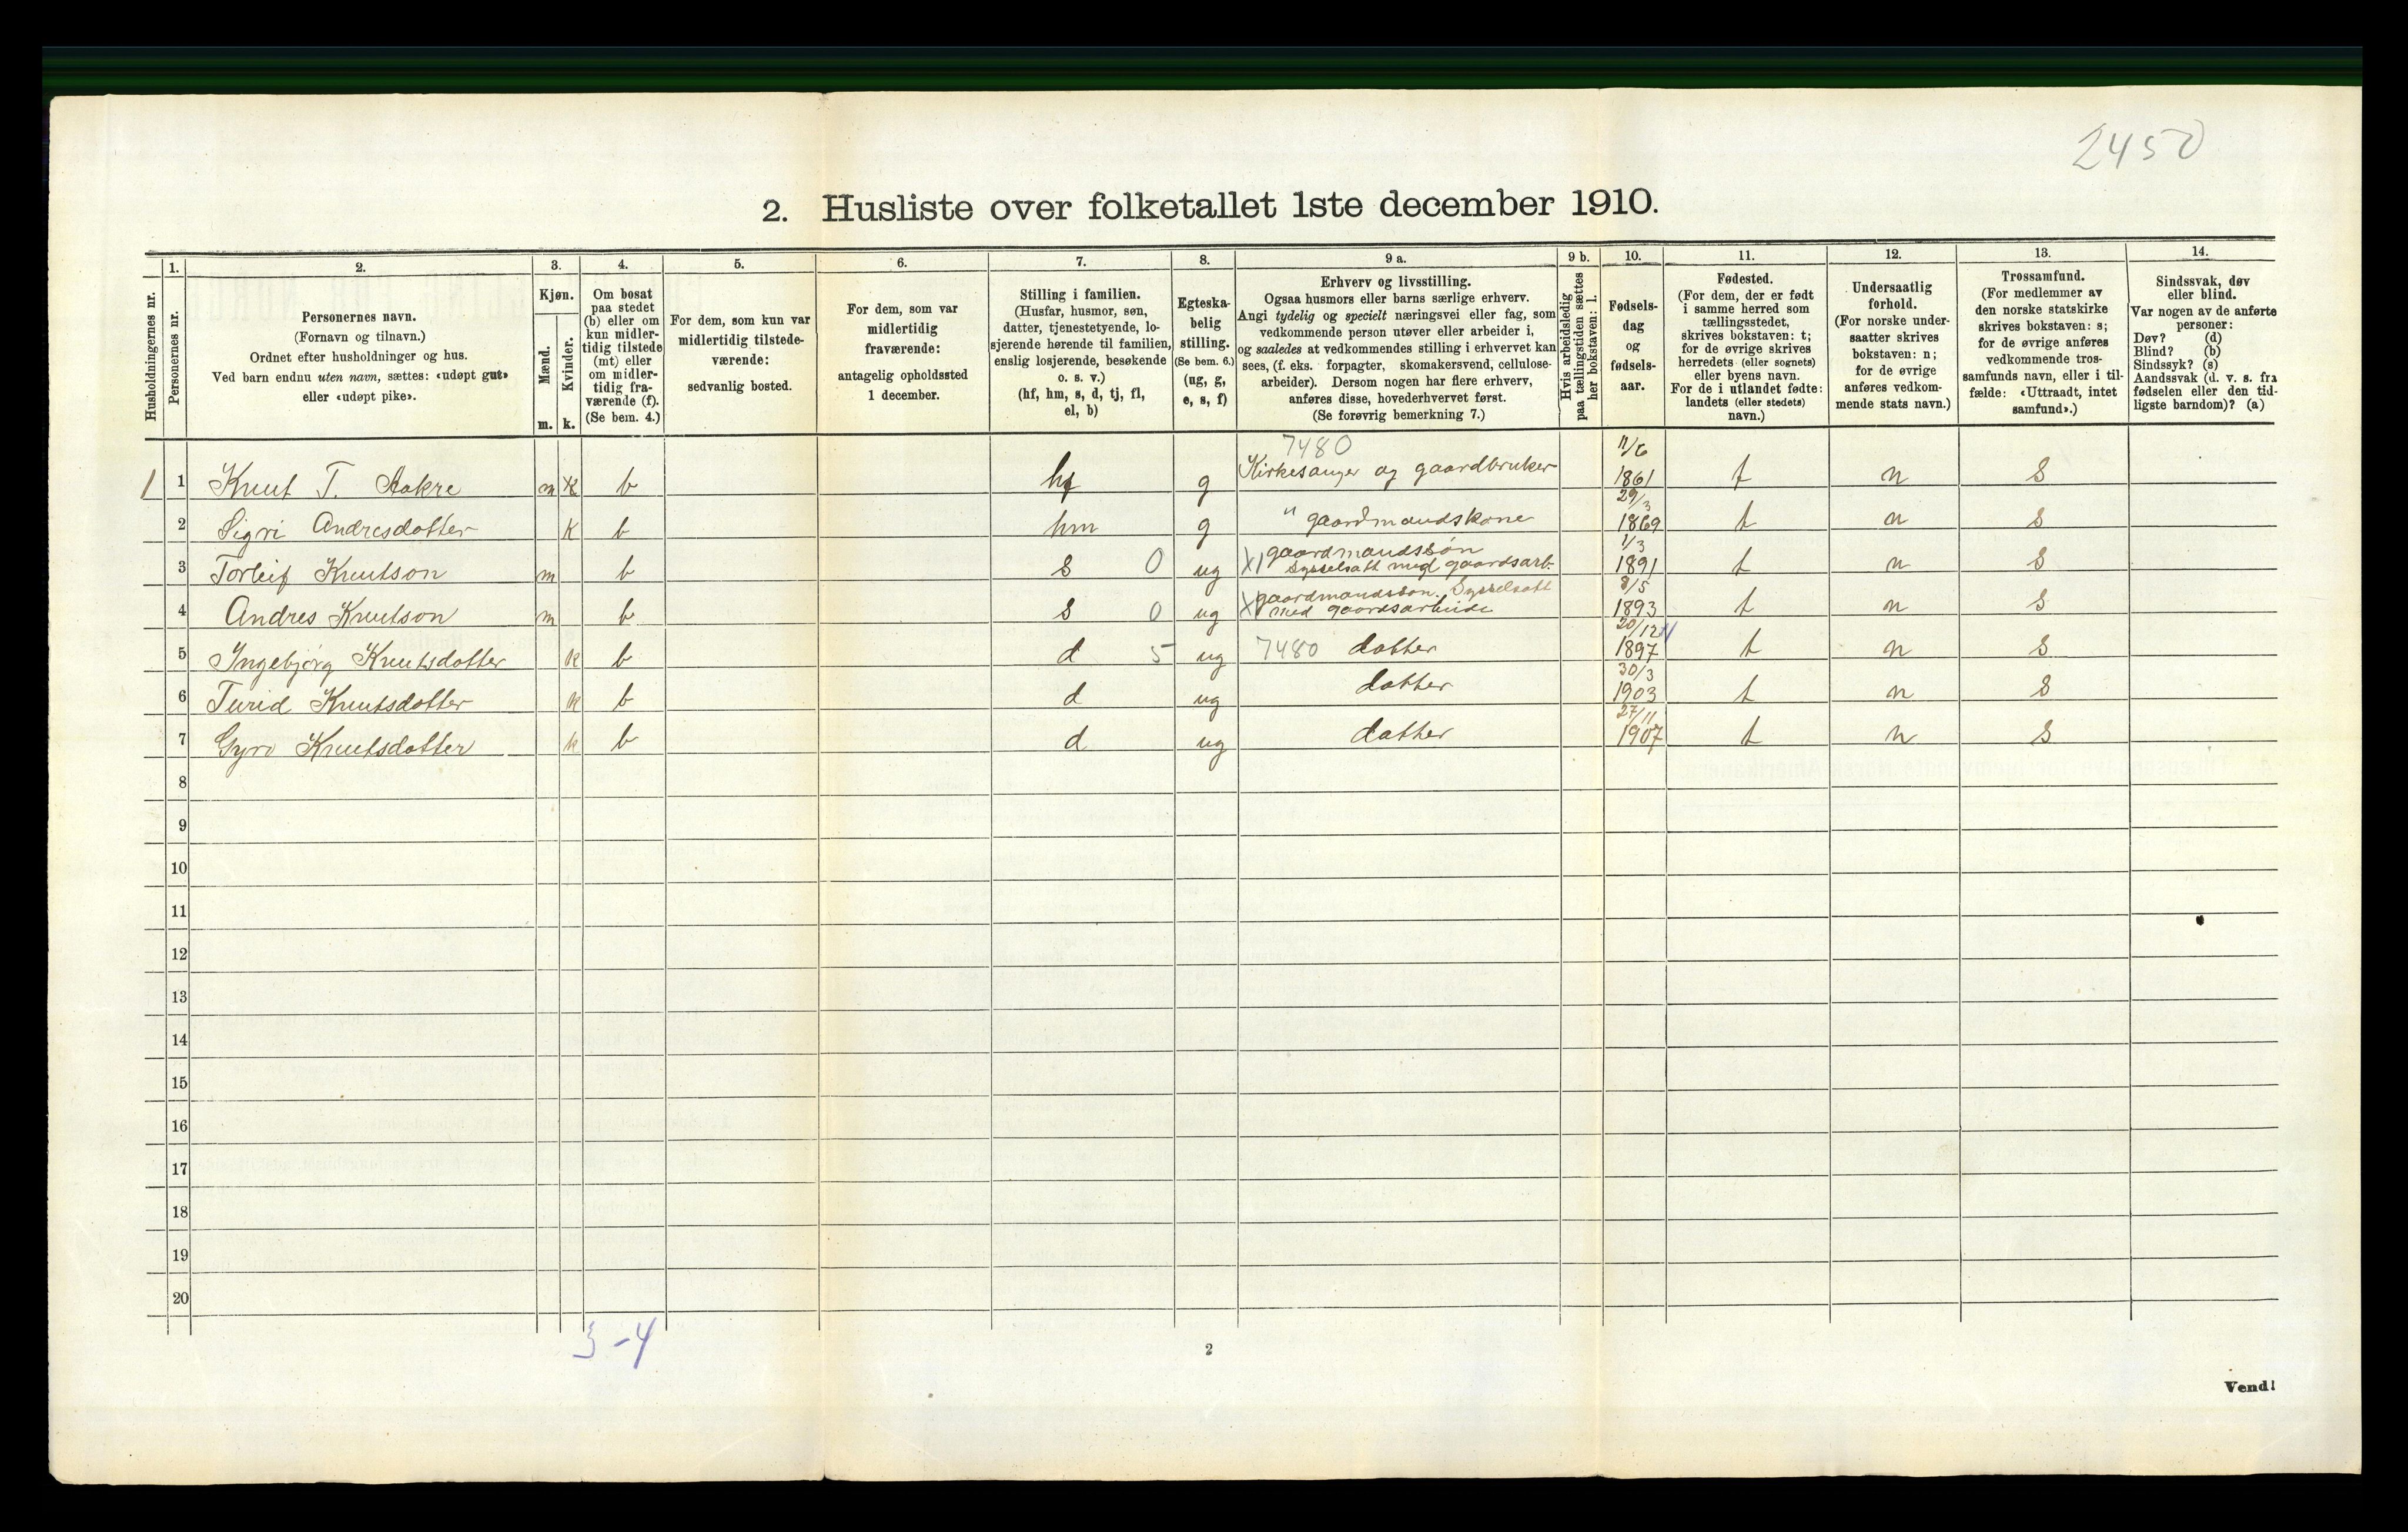 2450
2. Husliste over folketallet 1ste december 1910.
Husholdningernes nr.
1.
Personernes nr.
2.
Personernes navn.
(Fornavn og tilnavn.)
Ordnet efter husholdninger og hus.
Ved barn endnu uten navn, sættes: «udøpt gut»
eller «udøpt pike».
3.
Kjøn.
Mænd.
Kvinder.
m. k.
4.
Om bosat
paa stedet
(b) eller om
kun midler-
tidig tilstede
(mt) eller
om midler-
tidig fra-
værende (f).
(Se bem. 4.)
5.
For dem, som kun var
midlertidig tilstede-
værende:
sedvanlig bosted.
6.
For dem, som var
midlertidig
fraværende:
antagelig opholdssted
1 december.
7.
Stilling i familien.
(Husfar, husmor, søn,
datter, tjenestetyende, lo-
sjerende hørende til familien,
enslig losjerende, besøkende
o. s. v.)
(hf, hm, s, d, tj, fl,
el, b)
8.
Egteska-
belig
stilling.
(Se bem. 6.)
(ug, g,
e, s, f)
9 a.
Erhverv og livsstilling.
Ogsaa husmors eller barns særlige erhverv.
Angi tydelig og specielt næringsvei eller fag, som
vedkommende person utøver eller arbeider i,
og saaledes at vedkommendes stilling i erhvervet kan
sees, (f. eks. forpagter, skomakersvend, cellulose-
arbeider). Dersom nogen har flere erhverv,
anføres disse, hovederhvervet først.
(Se forøvrig bemerkning 7.)
9 b.
Hvis arbeidsledig
paa tællingstiden sættes
her bokstaven: l.
10.
Fødsels-
dag
og
fødsels-
aar.
11.
Fødested.
(For dem, der er født
i samme herred som
tællingsstedet,
skrives bokstaven: t;
for de øvrige skrives
herredets (eller sognets)
eller byens navn.
For de i utlandet fødte:
landets (eller stedets)
navn.)
12.
Undersaatlig
forhold.
(For norske under-
saatter skrives
bokstaven: n;
for de øvrige
anføres vedkom-
mende stats navn.)
13.
Trossamfund.
(For medlemmer av
den norske statskirke
skrives bokstaven: s;
for de øvrige anføres
vedkommende tros-
samfunds navn, eller i til-
fælde: «Uttraadt, intet
samfund».)
14.
Sindssvak, døv
eller blind.
Var nogen av de anførte
personer:
Døv? (d)
Blind? (b)
Sindssyk? (s)
Aandssvak (d. v. s. fra
fødselen eller den tid-
ligste barndom)? (a)
7480
1 1 Knut T. Aakre m k b hf g Kirkesanger og gaardbruker 11/6 1861 t n s
2 Sigri Andresdotter k b hm g " gaardmandskone 29/3 1869 t n s
3 Torleif Knutson m b s 0 ug X1 gaardmandssøn
sysselsatt med gaardsarb- 1/3 1891 t n s
4 Andres Knutson m b s 0 ug X1 gaardmandssøn. Sysselsatt
med gaardsarbeide 8/5 1893 t n s
5 Ingebjørg Knutsdotter k b d 5 ug 7480 dotter 20/12 1897 t n s
6 Turid Knutsdotter k b d ug dotter 30/3 1903 t n s
7 Gyro Knutsdotter k b d ug dotter 27/11 1907 t n s
8
9
10
11
12
13
14
15
16
17
18
19
20
3-4
2
Vend!